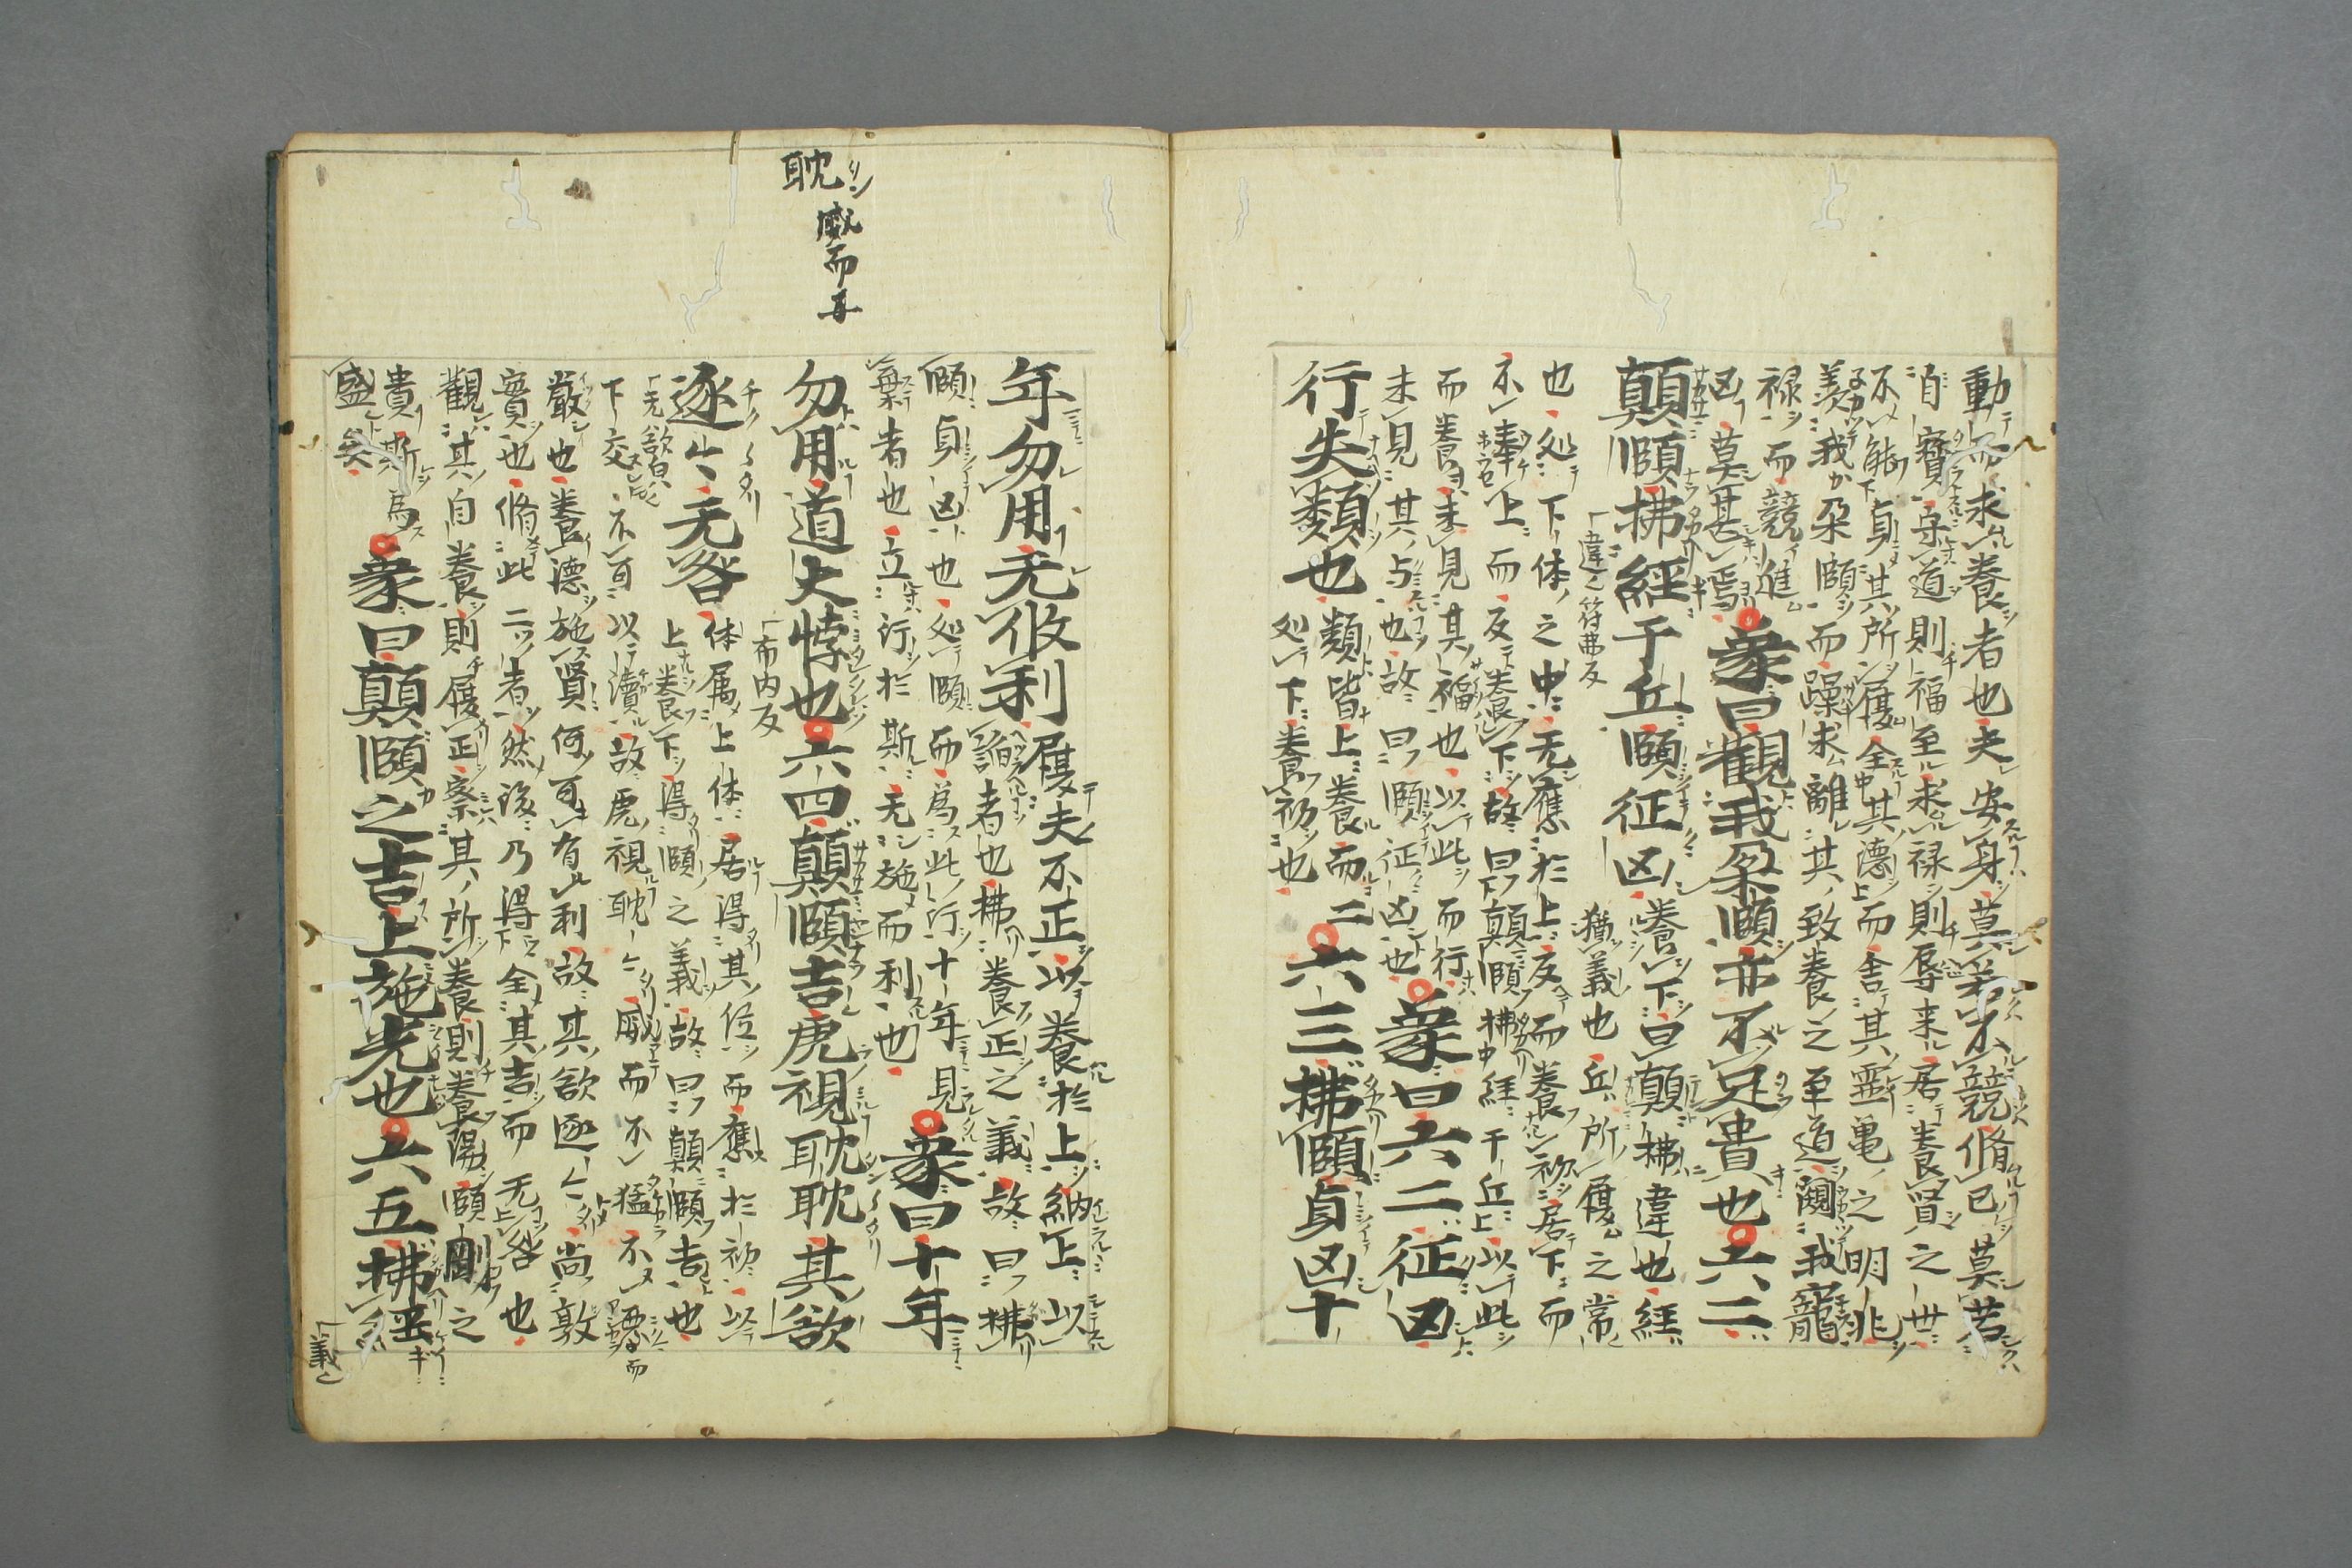 動而求養者也夫安身莫若不競脩己莫若
自寶守道則福至求禄則辱来居養賢之世
不能貞其所履全其德而舎其霊亀之明兆
羨我朶頤而躁求離其致養之至道闚我寵
禄而競進凶莫甚焉
象曰觀我朶頤亦不足貴也六二
顛頤拂經于丘頤征凶養下曰顛拂違也經
猶義也丘所履之常
也処下体之中无應於上反而養初居下而
不奉上而反養下故曰顛頤拂經于丘以此
而養未見其福也以此而行
未見其与也故曰頤征凶也
象曰六二征凶
行失類也類皆上養而二
処下養初也
六三拂頤貞凶十
年勿用无攸利履夫不正以養於上納上以
諂者也拂養正之義故曰拂
頤貞凶也処頤而為此行十年見
棄者也立行於斯无施而利也
象曰十年
勿用道大悖也六四顛頤吉虎視耽耽其欲
布内反
逐〻无咎体属上体居得其位而應於初以
上養下得頤之義故曰顛頤吉也
下交不可以瀆故虎視耽〻威而不猛不悪而
嚴也養德施賢何可有利故其欲逐〻尚敦
實也脩此二者然後乃得全其吉而无咎也
觀其自養則履正察其所養則養陽頤剛之
貴斯為
盛矣
象曰顛頤之吉上施光也六五拂經
耽
威而